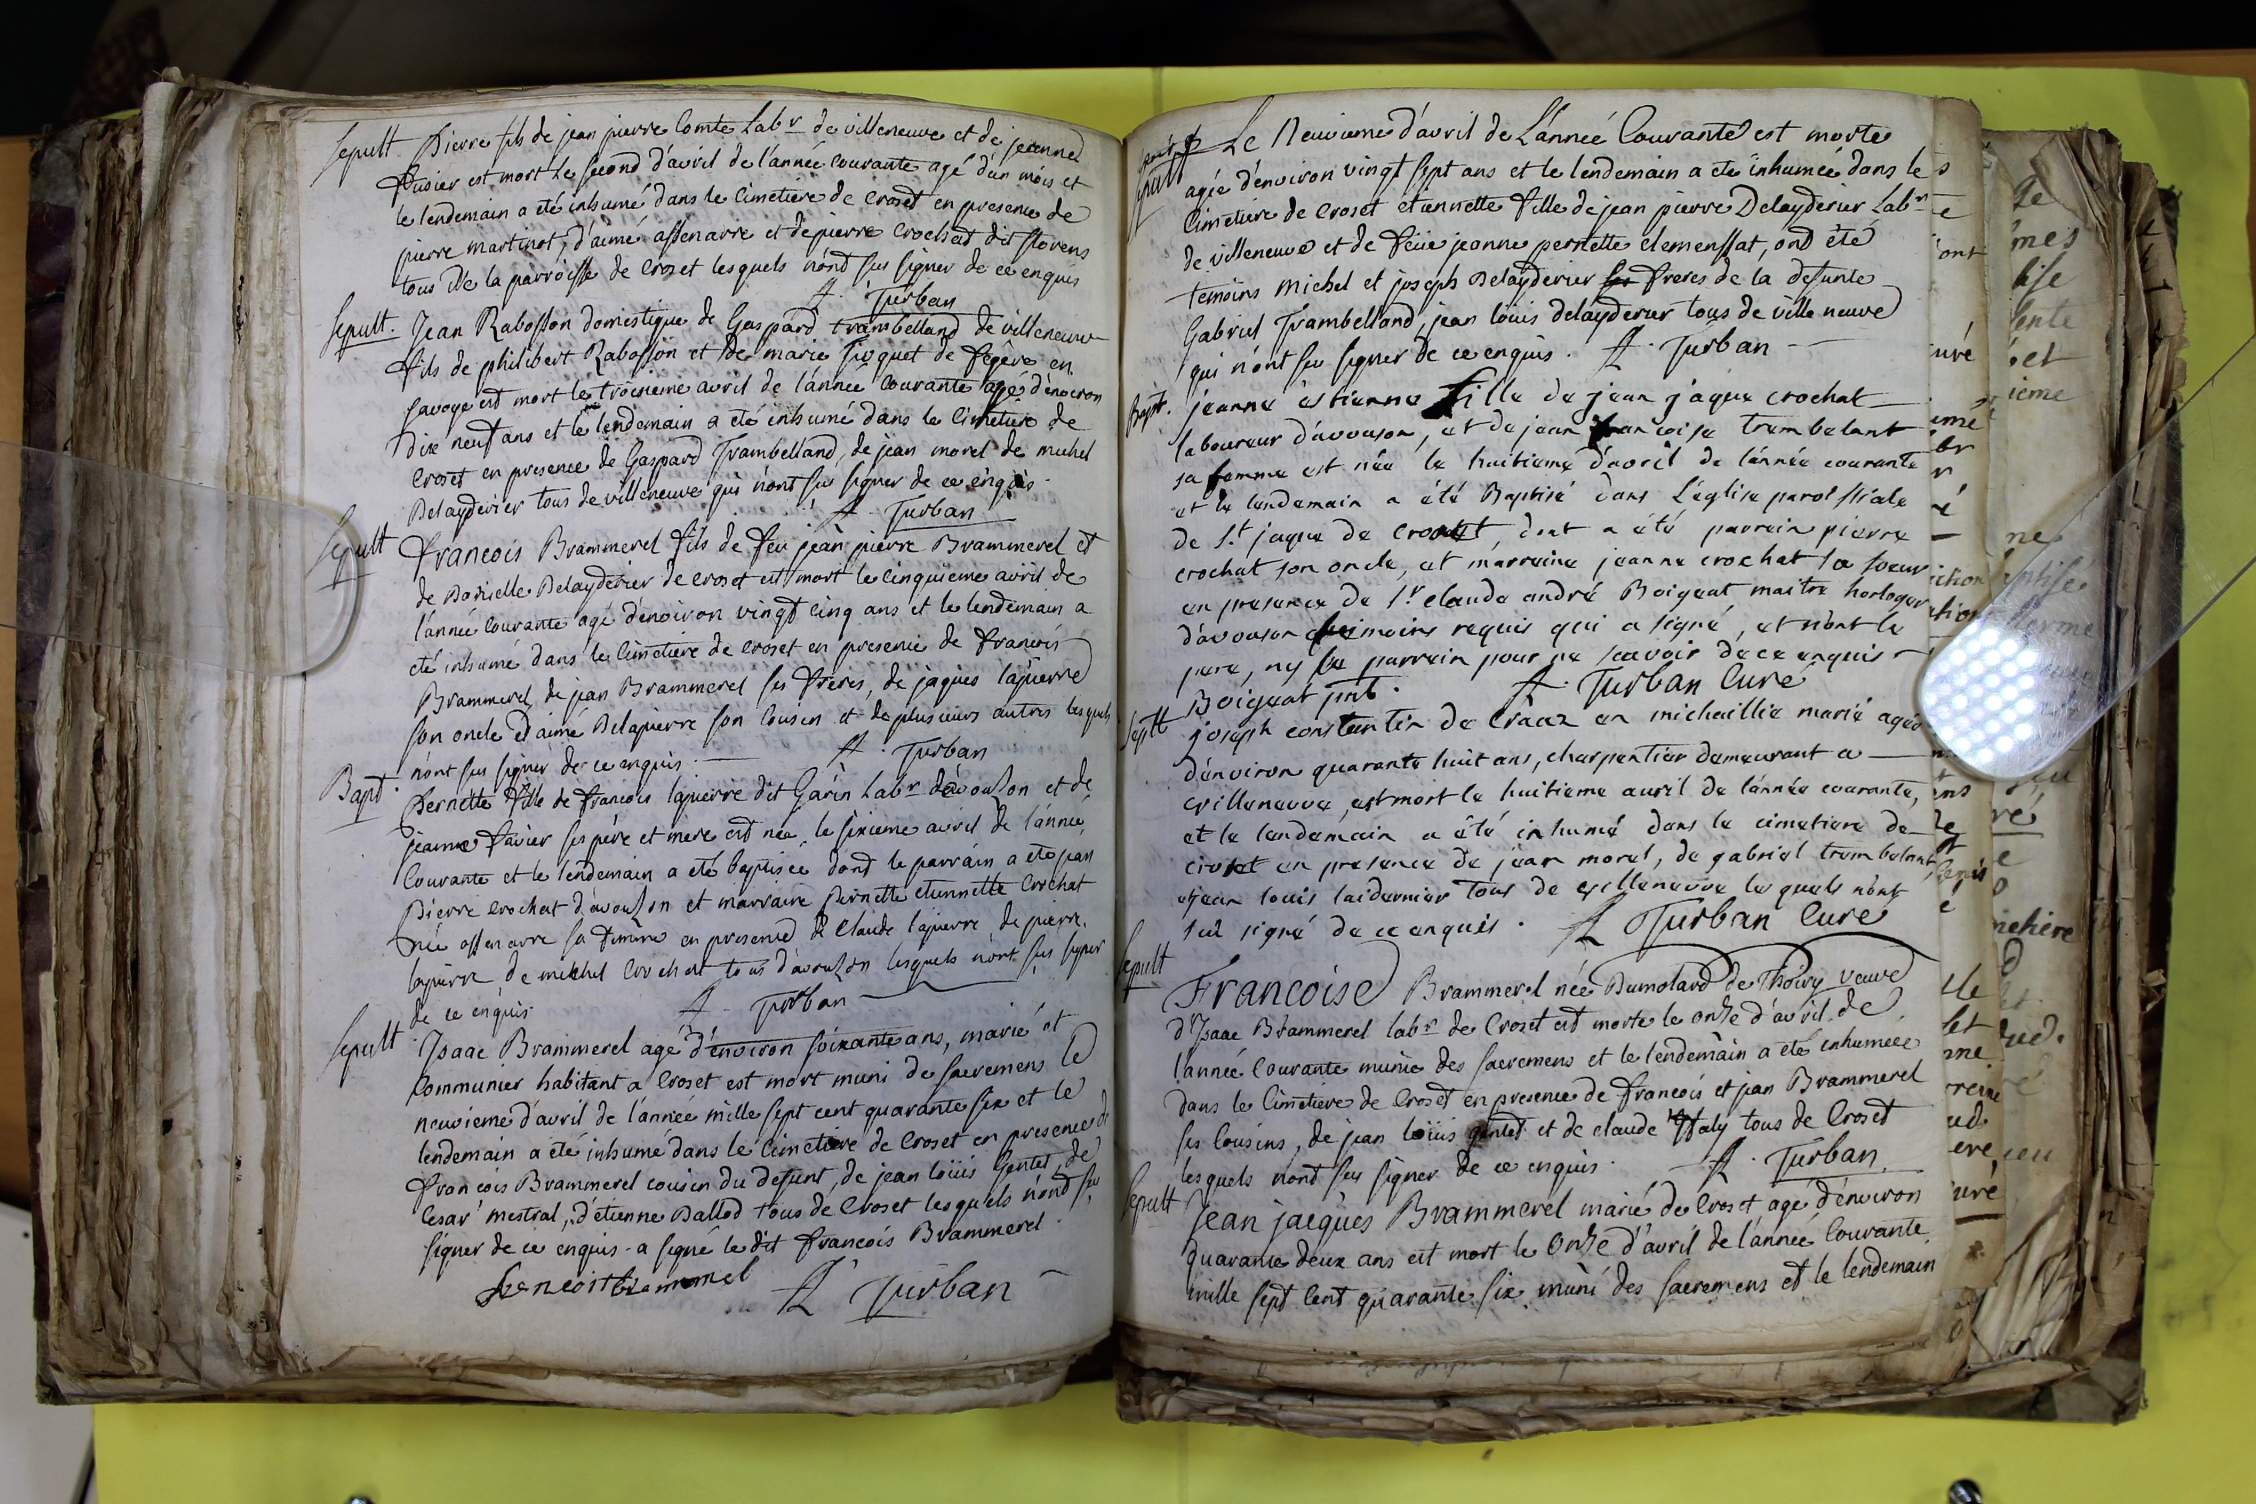 Sepult. Pierre fils de jean pierre Comte Lab.r de villeneuve et de jeanne
fusier est mort le second d'avril de l'année courante agé d'un mois et
le lendemain a eté inhumé dans le Cimetiere de Croset en presence de
pierre martinot, d'aimé assenarre et de pierre Crochat dit
tous de la parroisse de Croset lesquels n'ont sus signer de ce enquis
A. Turban
Sepult. Jean Rabosson domestique de Gaspard trambelland de villeneuve
fils de philibert Rabosson et de marie fuquet de en
savoye est mort le troisieme avril de l'année Courante agé d'environ
dix neuf ans et le lendemain a eté inhumé dans le Cimetiere de
Croset en presence de Gaspard Trambelland, de jean morel de michel
Delayderier tous de villeneuve qui n'ont sus signer de ce enquis.
A. Turban
Sepult francois Brammerel fils de feu jean pierre Brammerel et
de Delayderier de croset est mort le cinquieme avril de
l'année Courante agé d'environ vingt cinq ans et le lendemain a
eté inhumé dans le Cimetiere de croset en presence de francois
Brammerel, de jean Brammerel ses freres, de jaques lapierre
son oncle d'aimé Delapierre son Cousin et de plusieurs autres lesquels
n'ont sus signer de ce enquis. A. Turban
Bapt. Pernette fille de francois lapierre dit Garin Lab.r d'avouson et de
jeanne favier ses père et mere est née le sixieme avril de l'année
Courante et le lendemain a eté baptisée dont le parrain a eté jean
Pierre Crochat d'avouson et marraine Pernette etiennette Crochat
née assenarre sa femme en presence de Claude lapierre de pierre
lapierre, de michel Crochat tous d'avouson lesquels n'ont sus signer
de ce enquis A. Turban
Sepult Isaac Brammerel agé d'environ soixante ans, marié et
Communier habitant a Croset est mort muni de sacremens le
neuvieme d'avril de l'année mille sept cent quarante six et le
lendemain a eté inhumé dans le Cimetiere de Croset en presence de
francois Brammerel cousin du defunt, de jean loüis Gentet, de
Cesar mestral, d'etienne Dallod tous de Croset lesquels n'ont su
signer de ce enquis. a signé le dit francois Brammerel.
A. Turban
Sepult Le Neuvieme d'avril de L'année Courante est morte
agée d'environ vingt sept ans et le lendemain a eté inhumée dans le
Cimetiere de Croset etiennette fille de jean pierre Delayderier Lab.r
de villeneuve et de feüe jeanne pernette clemenssat, ont été
temoins michel et joseph Delayderier freres de la defunte
Gabriel Trambelland, jean loüis delayderier tous de ville neuve
qui n'ont su signer de ce enquis. A. Turban
Bapt. jeanne êstienne fille de jean j'aque crochat
laboureur d'avouson, et de jean francoise trembelant
sa femme est née le huitieme d'avril de l'année courante
et le lendemain a été Baptisé dans L'église paroissiale
de S.t jaque de croset, dont a été parrein pierre
crochat son oncle, et marreine jeanne crochat sa soeur
en presence de s.r claude andré Boigeat maitre horloger
d'avouson temoins requis qui a signé, et n'ont le
pere, ny le parrein pour ne scavoir de ce enquis
Boigeat pnt. A. Turban Curé
Septt joseph constantin de Craaz en michaillie marié agés
d'environ quarante huit ans, charpentier demeurant a
villeneuve, est mort le huitieme avril de l'année courante,
et le lendemain a été inhumé dans le cimetiere de
croset en presence de jean morel, de gabriel trembelant,
et jean louis laidernier tous de villeneuve lesquels n'ont
seu signé de ce enquis. A. Turban Curé
Sepult Francoise Brammerel née Dumolard de Thoiry veuve
d'Isaac Brammerel lab.r de Croset est morte le onze d'avril de
l'année Courante munie des sacremens et le lendemain a été inhumée
dans le Cimetiere de Croset en presence de francois et jean Brammerel
ses Cousins, de jean loüis gentet et de claude Staly tous de Croset
lesquels n'ont sus signer de ce enquis. A. Turban
Sepult Jean jacques Brammerel marié de Croset agé d'environ
quarante deux ans est mort le Onze d'avril de l'année Courante
mille sept Cent quarante six muni des sacremens et le lendemain